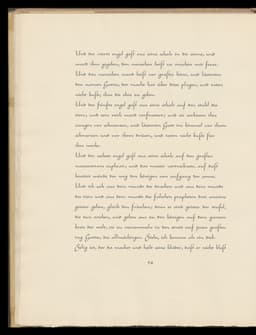 Und der vierte engel goß aus seine schale in die sonne, und
ward ihm gegeben, den menschen heiß zu machen mit feuer.
Und den menschen ward heiß vor großer hitze, und lästerten
den namen Gottes, der macht hat über diese plagen, und taten
nicht buße, ihm die ehre zu geben.
Und der fünfte engel goß aus seine schale auf den stuhl des
tiers; und sein reich ward verfinstert; und sie zerbissen ihre
zungen vor schmerzen, und lästerten Gott im himmel vor ihren
schmerzen und vor ihren drüsen, und taten nicht buße für
ihre werke.
Und der sechste engel goß aus seine schale auf den großen
wasserstrom euphrat; und das wasser vertrocknete, auf daß
bereitet würde der weg den königen vom aufgang der sonne.
Und ich sah aus dem munde des drachen und aus dem munde
des tiers und aus dem munde des falschen propheten drei unreine
geister gehen, gleich den fröschen; denn es sind geister der teufel,
die tun zeichen, und gehen aus zu den königen auf dem ganzen
kreis der welt, sie zu versammeln in den streit auf jenen großen
tag Gottes, des allmächtigen. Siehe, ich komme als ein dieb.
Selig ist, der da wachet und hält seine kleider, daß er nicht bloß